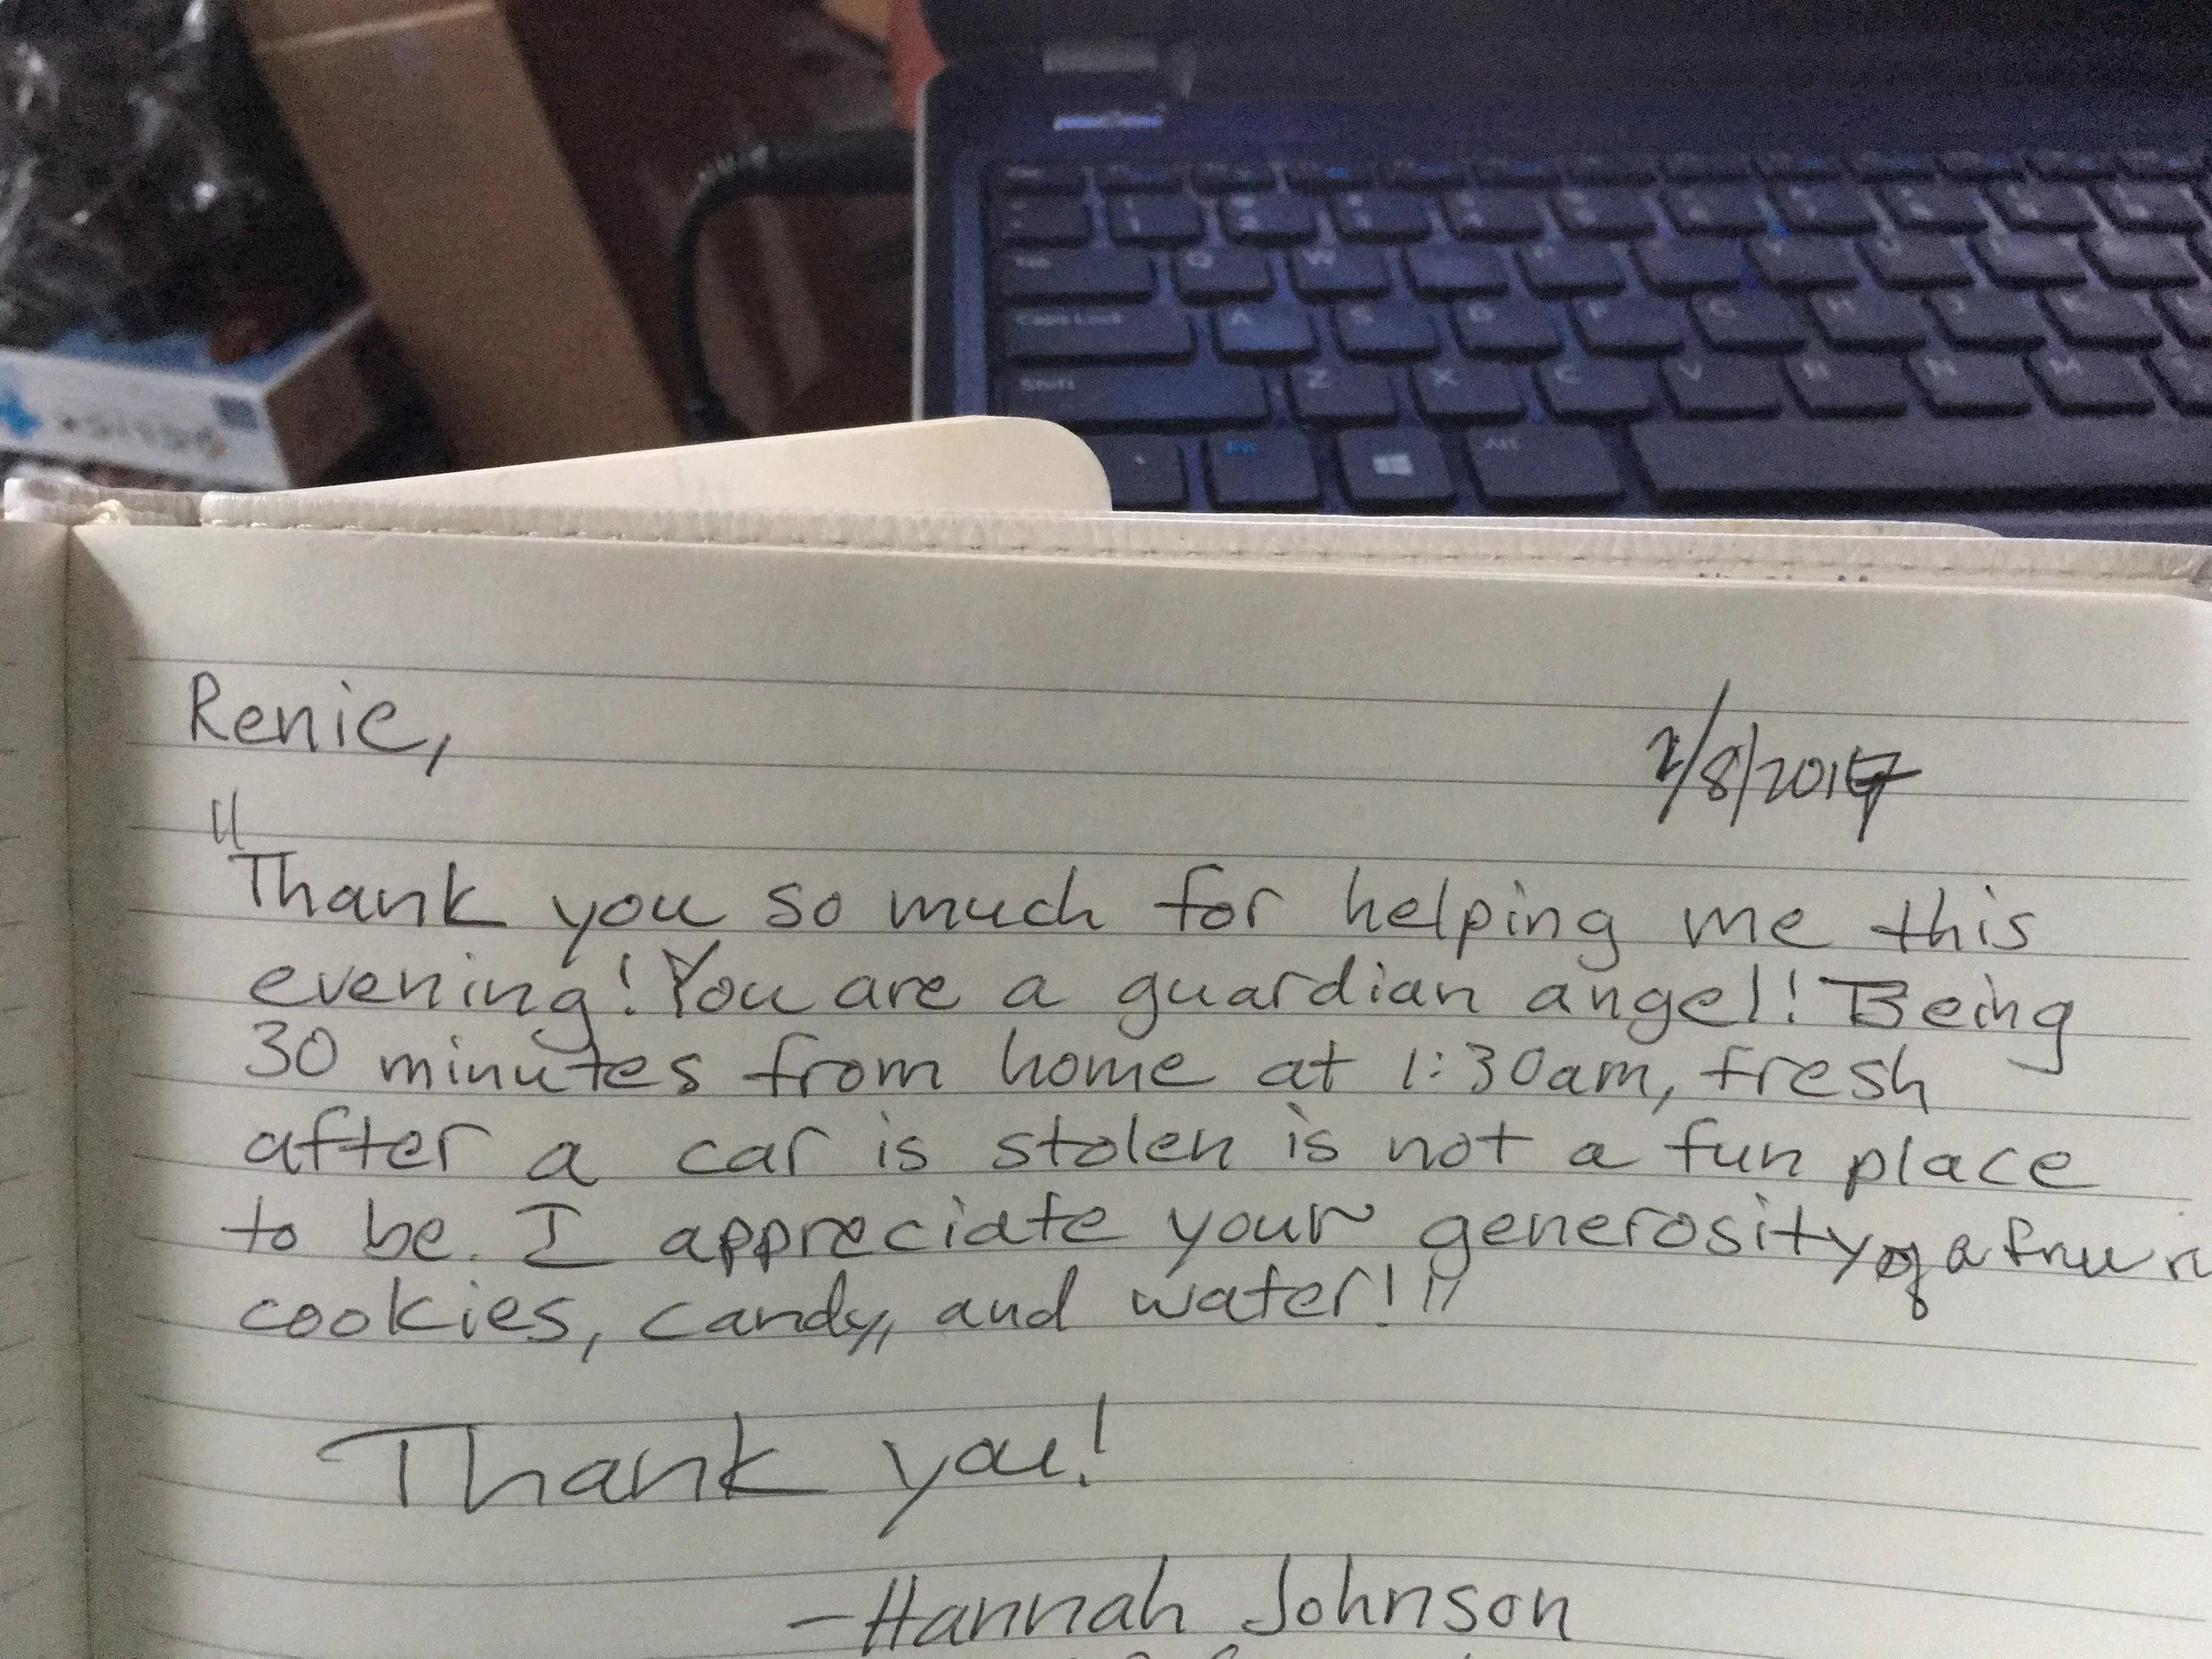 Tab Q W
Caps Lock A S D F G H J K
Shift Z X C V B N M
Fn Alt
Renie,
2/8/2017
"Thank you so much for helping me this
evening! You are a guardian angel! Being
30 minutes from home at 1:30am, fresh
after a car is stolen is not a fun place
to be. I appreciate your generosity of a free
cookies, candy, and water!"
Thank you!
-Hannah Johnson